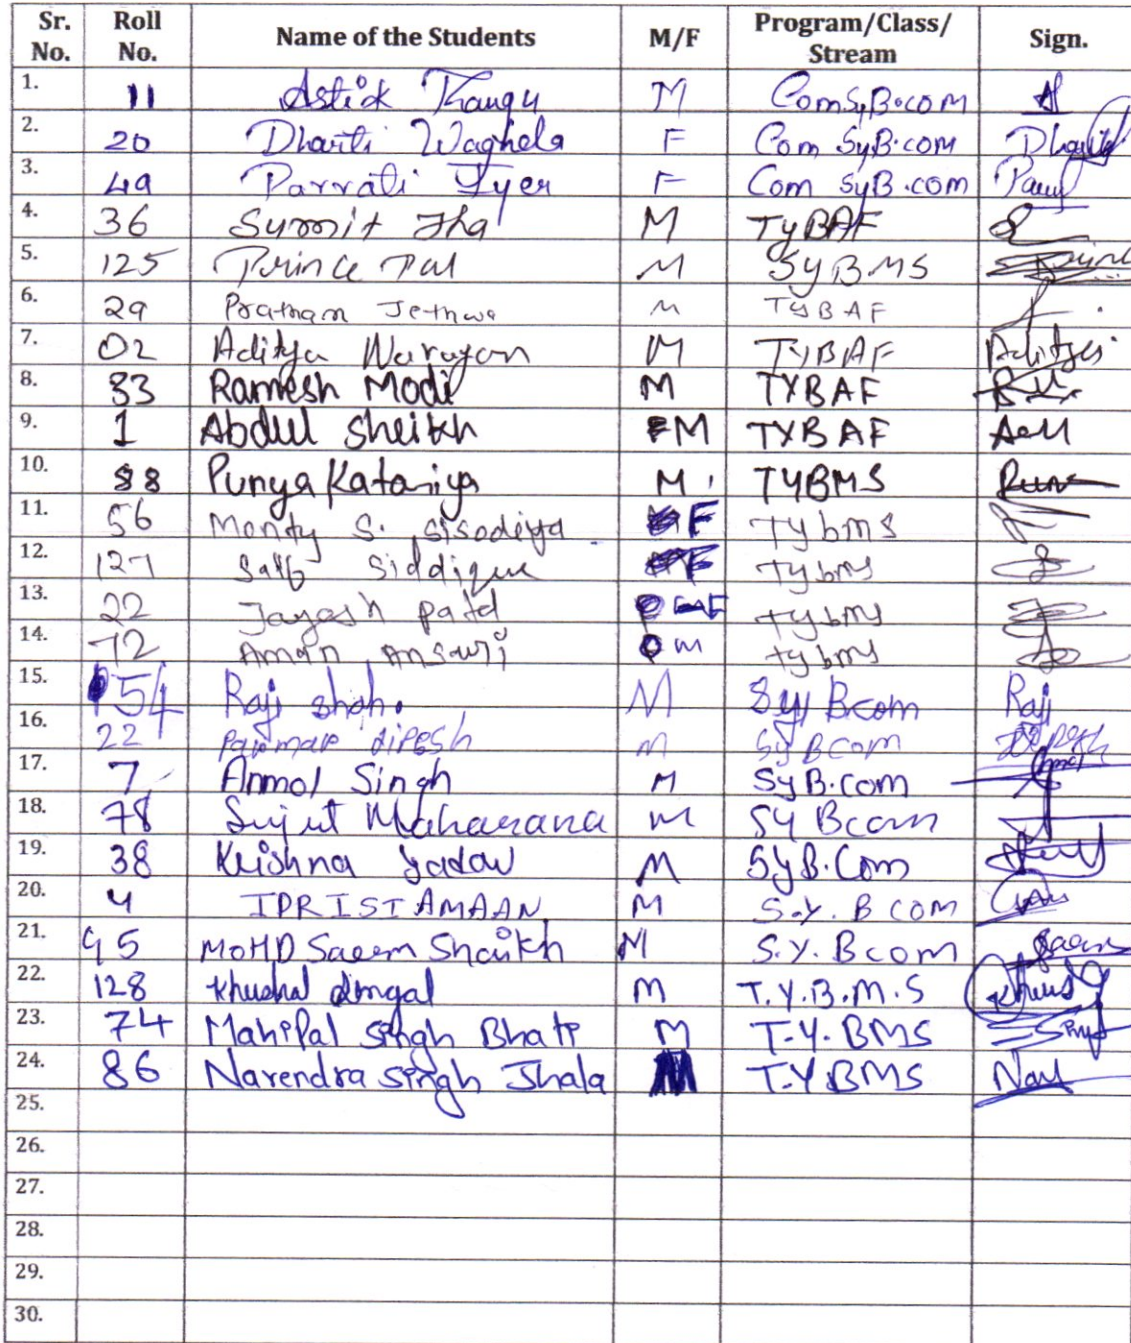 Sr. No. Roll No. Name of the Students M/F Program/Class/Stream Sign.
1. 11 Astik M Com SyB.com
2. 20 Dharti Waghela F Com SyB.com
3. 49 Parvati Iyer F Com SyB.com
4. 36 Sumit Jha M TyBAF
5. 125 Prince Pal M SYBMS
6. 29 Pratham Jethwa M TYBAF
7. 02 Aditya Narayan M TYBAF Aditya
8. 33 Ramesh Modi M TYBAF
9. 1 Abdul Sheikh M TYBAF
10. 88 Punya Katariya M TYBMS
11. 56 Monty S. Sisodiya F Tybms
12. 127 Siddique F Tybms
13. 22 Jayesh patel F tybms
14. 72 Aman Ansari M tybms
15. 54 Raj Shah. M Sy Bcom Raj
16. 22 parmar dipesh M Sy Bcom
17. 7 Anmol Singh M SyB.com
18. 78 Sujit Maharana M SY Bcom
19. 38 Krishna Yadav M SyB.Com
20. 4 IDRISI AMAAN M S.Y. B COM
21. 95 MOHD Saeem Shaikh M S.Y. Bcom
22. 128 khushal M T.Y.B.M.S
23. 74 Mahipal Singh Bhati M T.Y. BMS
24. 86 Narendra Singh Jhala M T.Y BMS
25.
26.
27.
28.
29.
30.